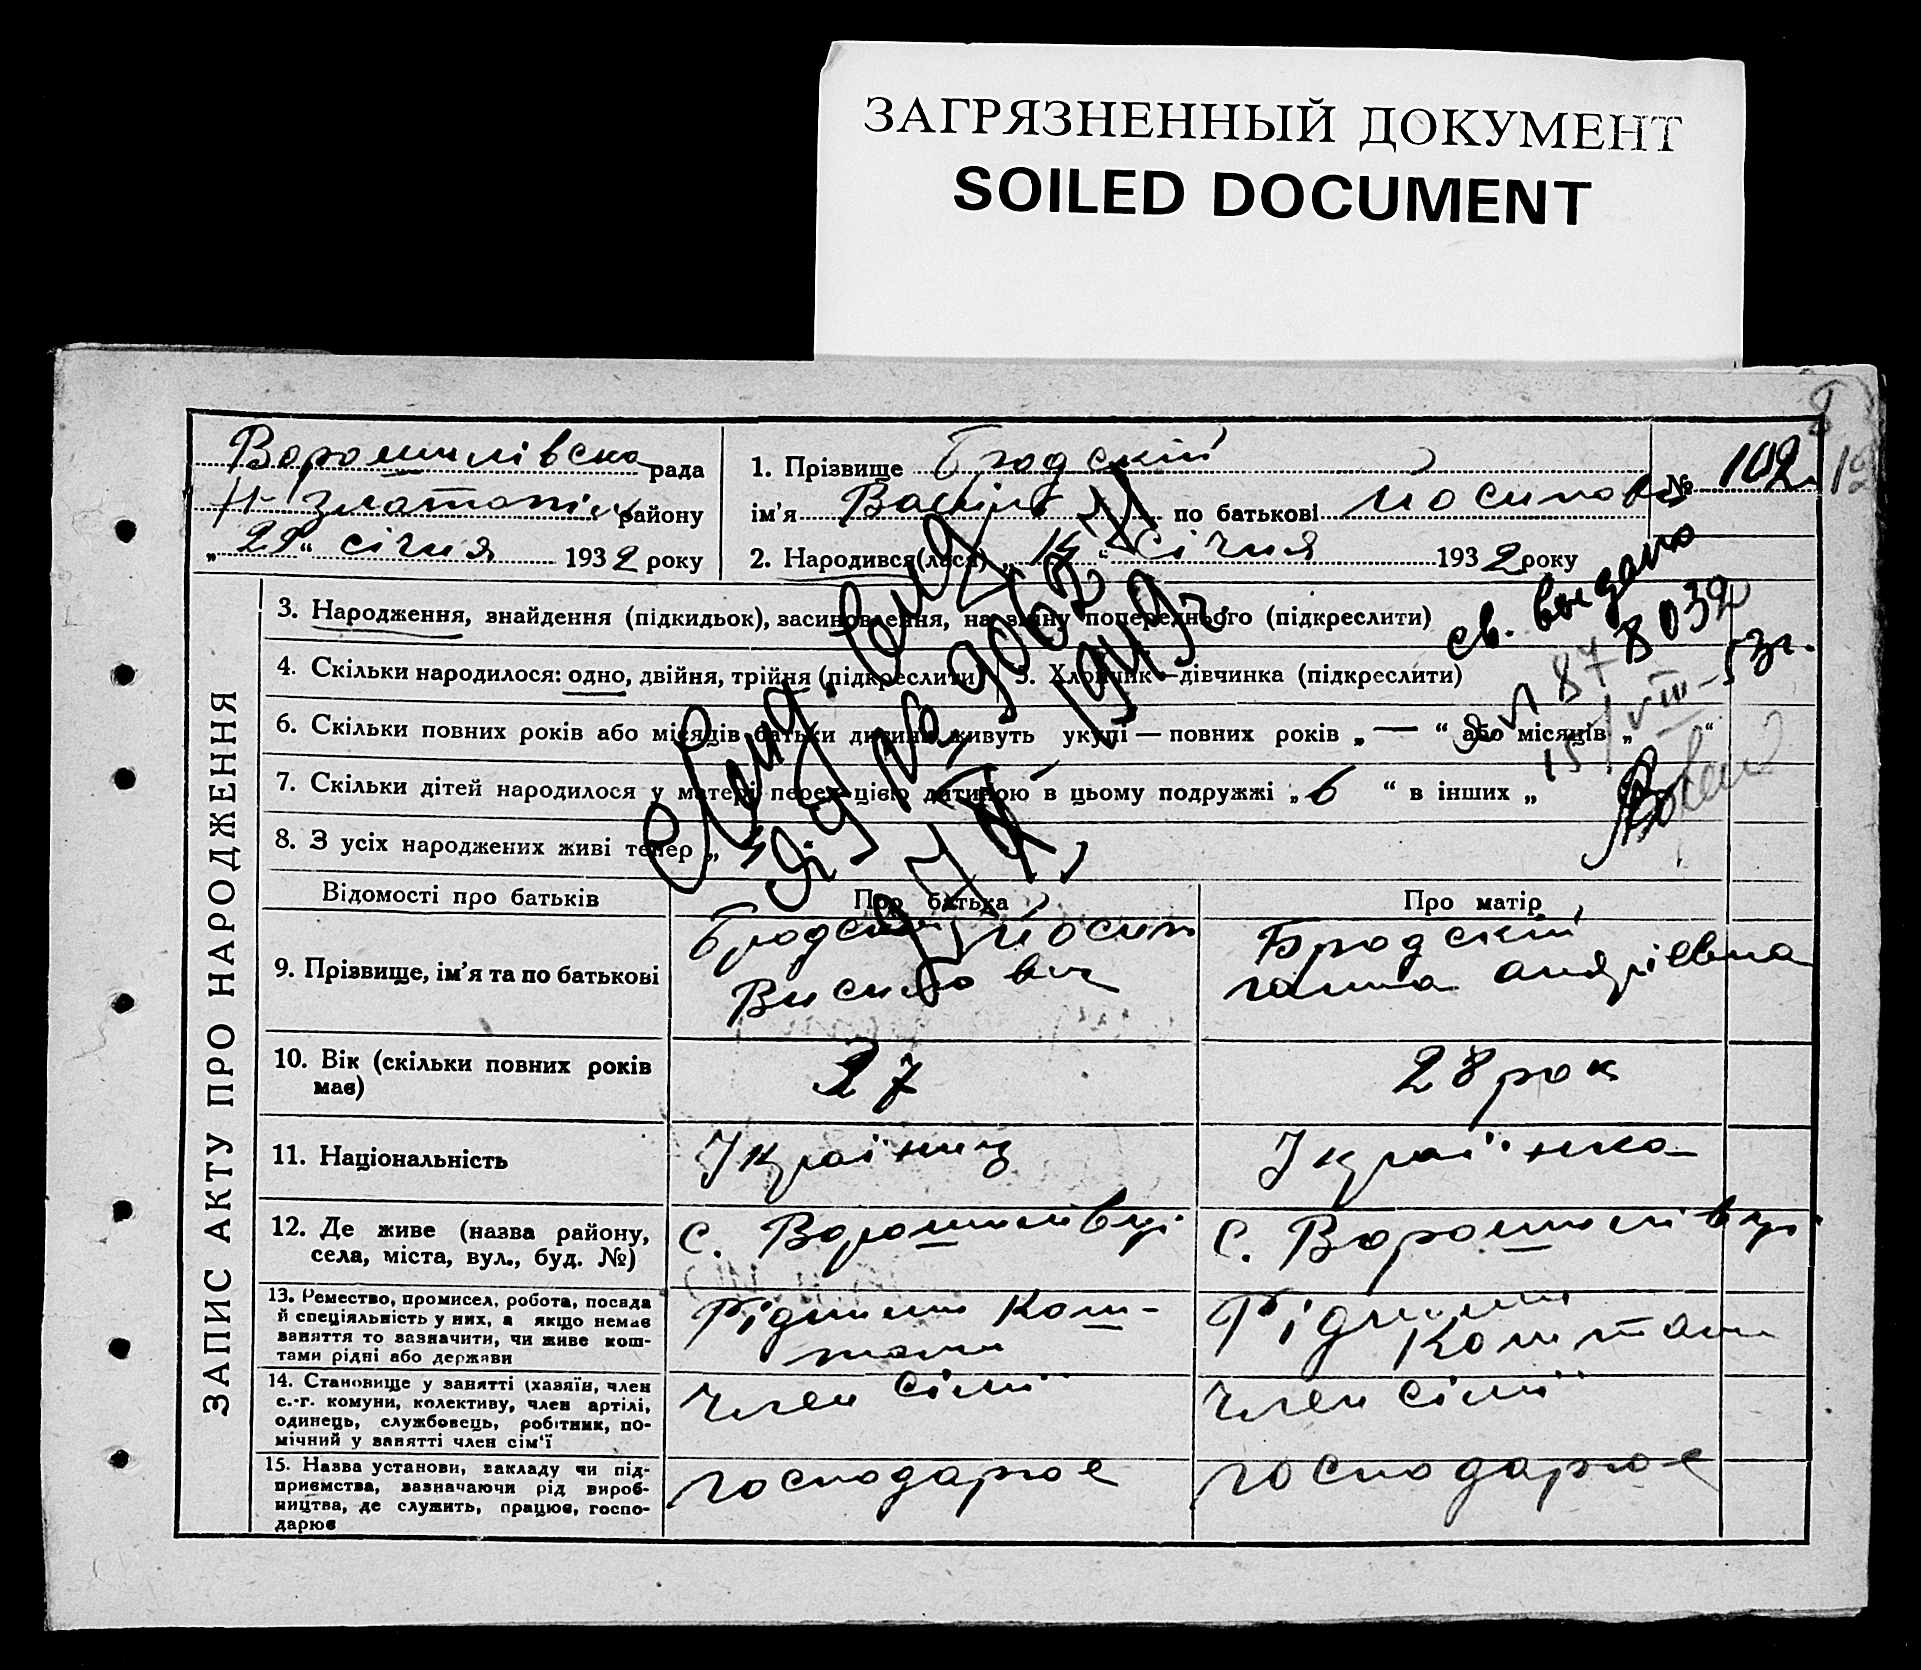 ЗАГРЯЗНЕННЫЙ ДОКУМЕНТ
SOILED DOCUMENT
ЗАПИС АКТУ ПРО НАРОДЖЕННЯ
Ворошилівська рада
Н-Златопіль району
„29“ січня 1932 року
1. Прізвище Бродський
ім'я Василь по батькові Йосипов
№ 102
2. Народився(лася) „14“ Січня 1932 року
3. Народження, знайдення (підкидьок), засиновлення, на зміну попереднього (підкреслити)
4. Скільки народилося: одно, двійня, трійня (підкреслити) 5. Хлопчик—дівчинка (підкреслити)
6. Скільки повних років або місяців батьки дитини живуть укупі — повних років „ — “ або місяців „ “
7. Скільки дітей народилося у матері перед цією дитиною в цьому подружжі „ 6 “ в інших „
8. З усіх народжених живі тепер „
св. выдано
Відомості про батьків Про батька Про матір
9. Прізвище, ім'я та по батькові
Бродський Йосип
Бродский
ганна андріевна
10. Вік (скільки повних років має)
27
28 рок
11. Національність
Українец
Українка
12. Де живе (назва району, села, міста, вул., буд. №)
с. Ворошилівці
с. Ворошилівці
13. Ремество, промисел, робота, посада
й спеціяльність у них, а якщо немає
заняття то зазначити, чи живе кош-
тами рідні або держави
Рідними кош-
тами
Рідними
коштами
14. Становище у занятті (хазяїн, член
с.-г. комуни, колективу, член артілі,
одинець, службовець, робітник, по-
мічний у занятті член сім'ї
член сімї
член сімї
15. Назва установи, закладу чи під-
приємства, зазначаючи рід вироб-
ництва, де служить, працює, госпо-
дарює
господарює
господарює